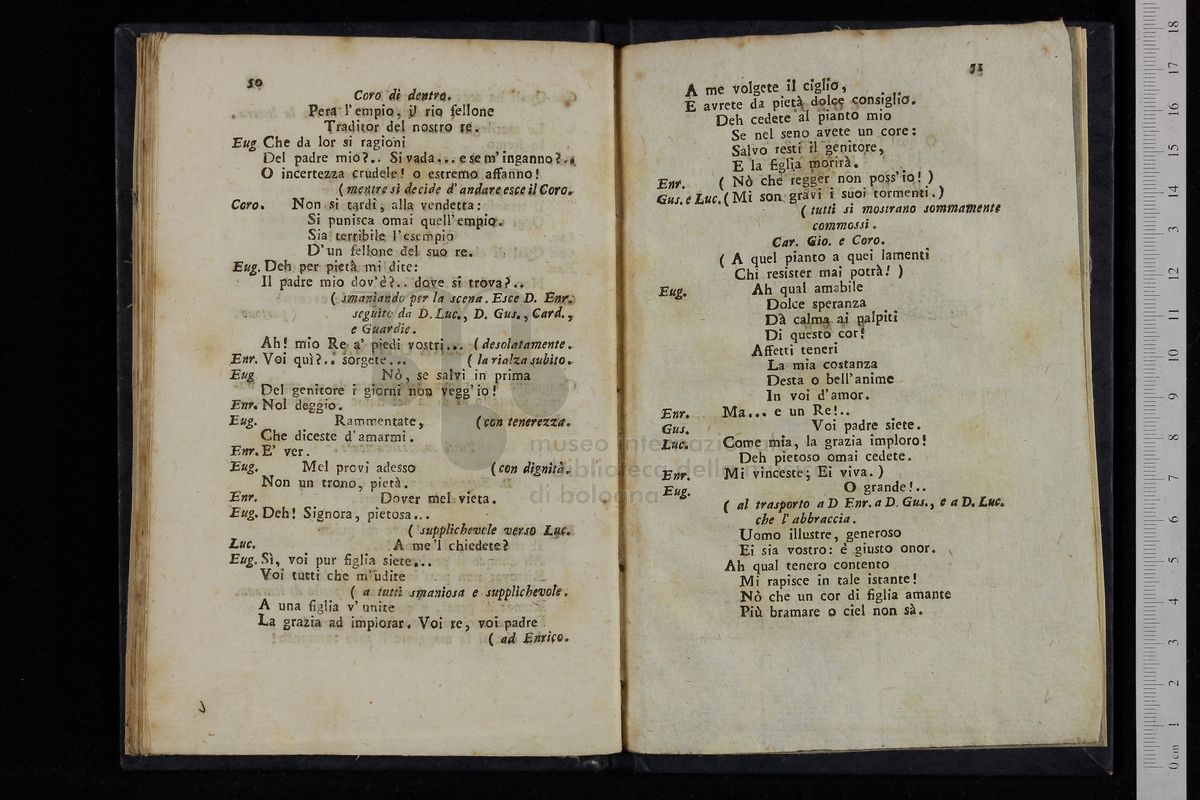 50
Coro di dentro.
Pera l'empio, il rio fellone
Traditor del nostro re.
Eug Che da lor si ragioni
Del padre mio?.. Si vada... e se m'inganno?..
O incertezza crudele! o estremo affanno!
( mentre si decide d'andare esce il Coro.
Coro. Non si tardi, alla vendetta:
Si punisca omai quell'empio.
Sia terribile l'esempio
D'un fellone del suo re.
Eug. Deh per pietà mi dite:
Il padre mio dov'è?.. dove si trova?..
( smaniando per la scena. Esce D. Enr.
seguito da D. Luc., D. Gus., Card.,
e Guardie.
Ah! mio Re a' piedi vostri... ( desolatamente.
Enr. Voi quì?.. sorgete... ( la rialza subito.
Eug Nò, se salvi in prima
Del genitore i giorni non vegg'io!
Enr. Nol deggio.
Eug. Rammentate, ( con tenerezza.
Che diceste d'amarmi.
Enr. E' ver.
Eug. Mel provi adesso ( con dignità.
Non un trono, pietà.
Enr. Dover mel vieta.
Eug. Deh! Signora, pietosa...
( supplichevole verso Luc.
Luc. A me'l chiedete?
Eug. Sì, voi pur figlia siete...
Voi tutti che m'udite
( a tutti smaniosa e supplichevole.
A una figlia v'unite
La grazia ad implorar. Voi re, voi padre
( ad Enrico.
51
A me volgete il ciglio,
E avrete da pietà dolce consiglio.
Deh cedete al pianto mio
Se nel seno avete un core:
Salvo resti il genitore,
E la figlia morirà.
Enr. ( Nò che regger non poss'io! )
Gus. e Luc. ( Mi son gravi i suoi tormenti. )
( tutti si mostrano sommamente
commossi.
Car. Gio. e Coro.
( A quel pianto a quei lamenti
Chi resister mai potrà! )
Eug. Ah qual amabile
Dolce speranza
Dà calma ai palpiti
Di questo cor!
Affetti teneri
La mia costanza
Desta o bell'anime
In voi d'amor.
Enr. Ma... e un Re!..
Gus. Voi padre siete.
Luc. Come mia, la grazia imploro!
Deh pietoso omai cedete.
Enr. Mi vinceste; Ei viva. )
Eug. O grande!..
( al trasporto a D Enr. a D. Gus., e a D. Luc.
che l'abbraccia.
Uomo illustre, generoso
Ei sia vostro: è giusto onor.
Ah qual tenero contento
Mi rapisce in tale istante!
Nò che un cor di figlia amante
Più bramare o ciel non sà.
museo internazionale
biblioteca della musica
di bologna
0 cm 1 2 3 4 5 6 7 8 9 10 11 12 13 14 15 16 17 18